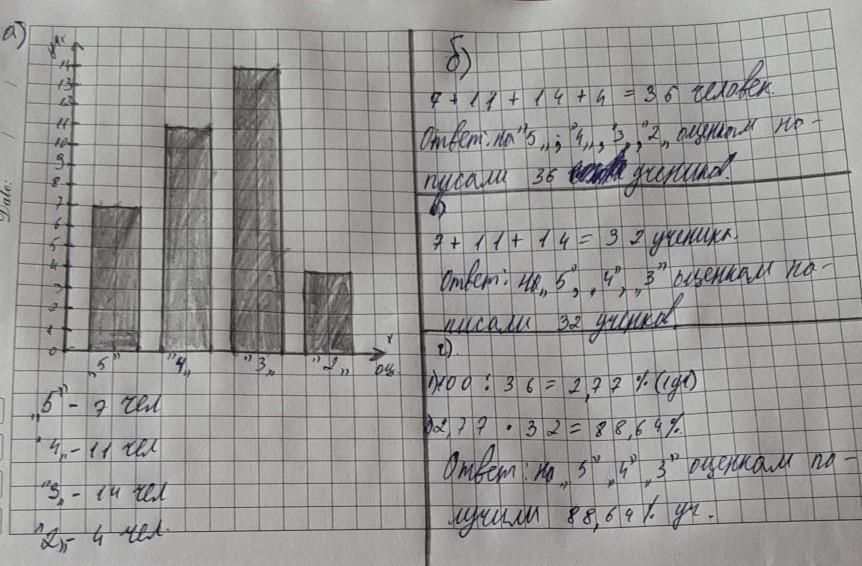 а)
14
13
12
11
10
9
8
7
6
5
4
3
2
1
0
"5" "4" "3" "2" оц.
x
"5" - 7 чел
"4" - 11 чел
"3" - 14 чел
"2" - 4 чел.
Date:
б)
7 + 11 + 14 + 4 = 36 человек.
Ответ: на "5", "4", "3", "2" оценкам на-
писали 36 учеников.
в)
7 + 11 + 14 = 32 ученика.
Ответ: на "5", "4", "3" оценкам на-
писали 32 учнков.
г).
1) 100 : 36 = 2,77 % (1 ч)
2) 2,77 · 32 = 88,64 %.
Ответ: на "5" "4" "3" оценкам по-
лучили 88,64 % уч.